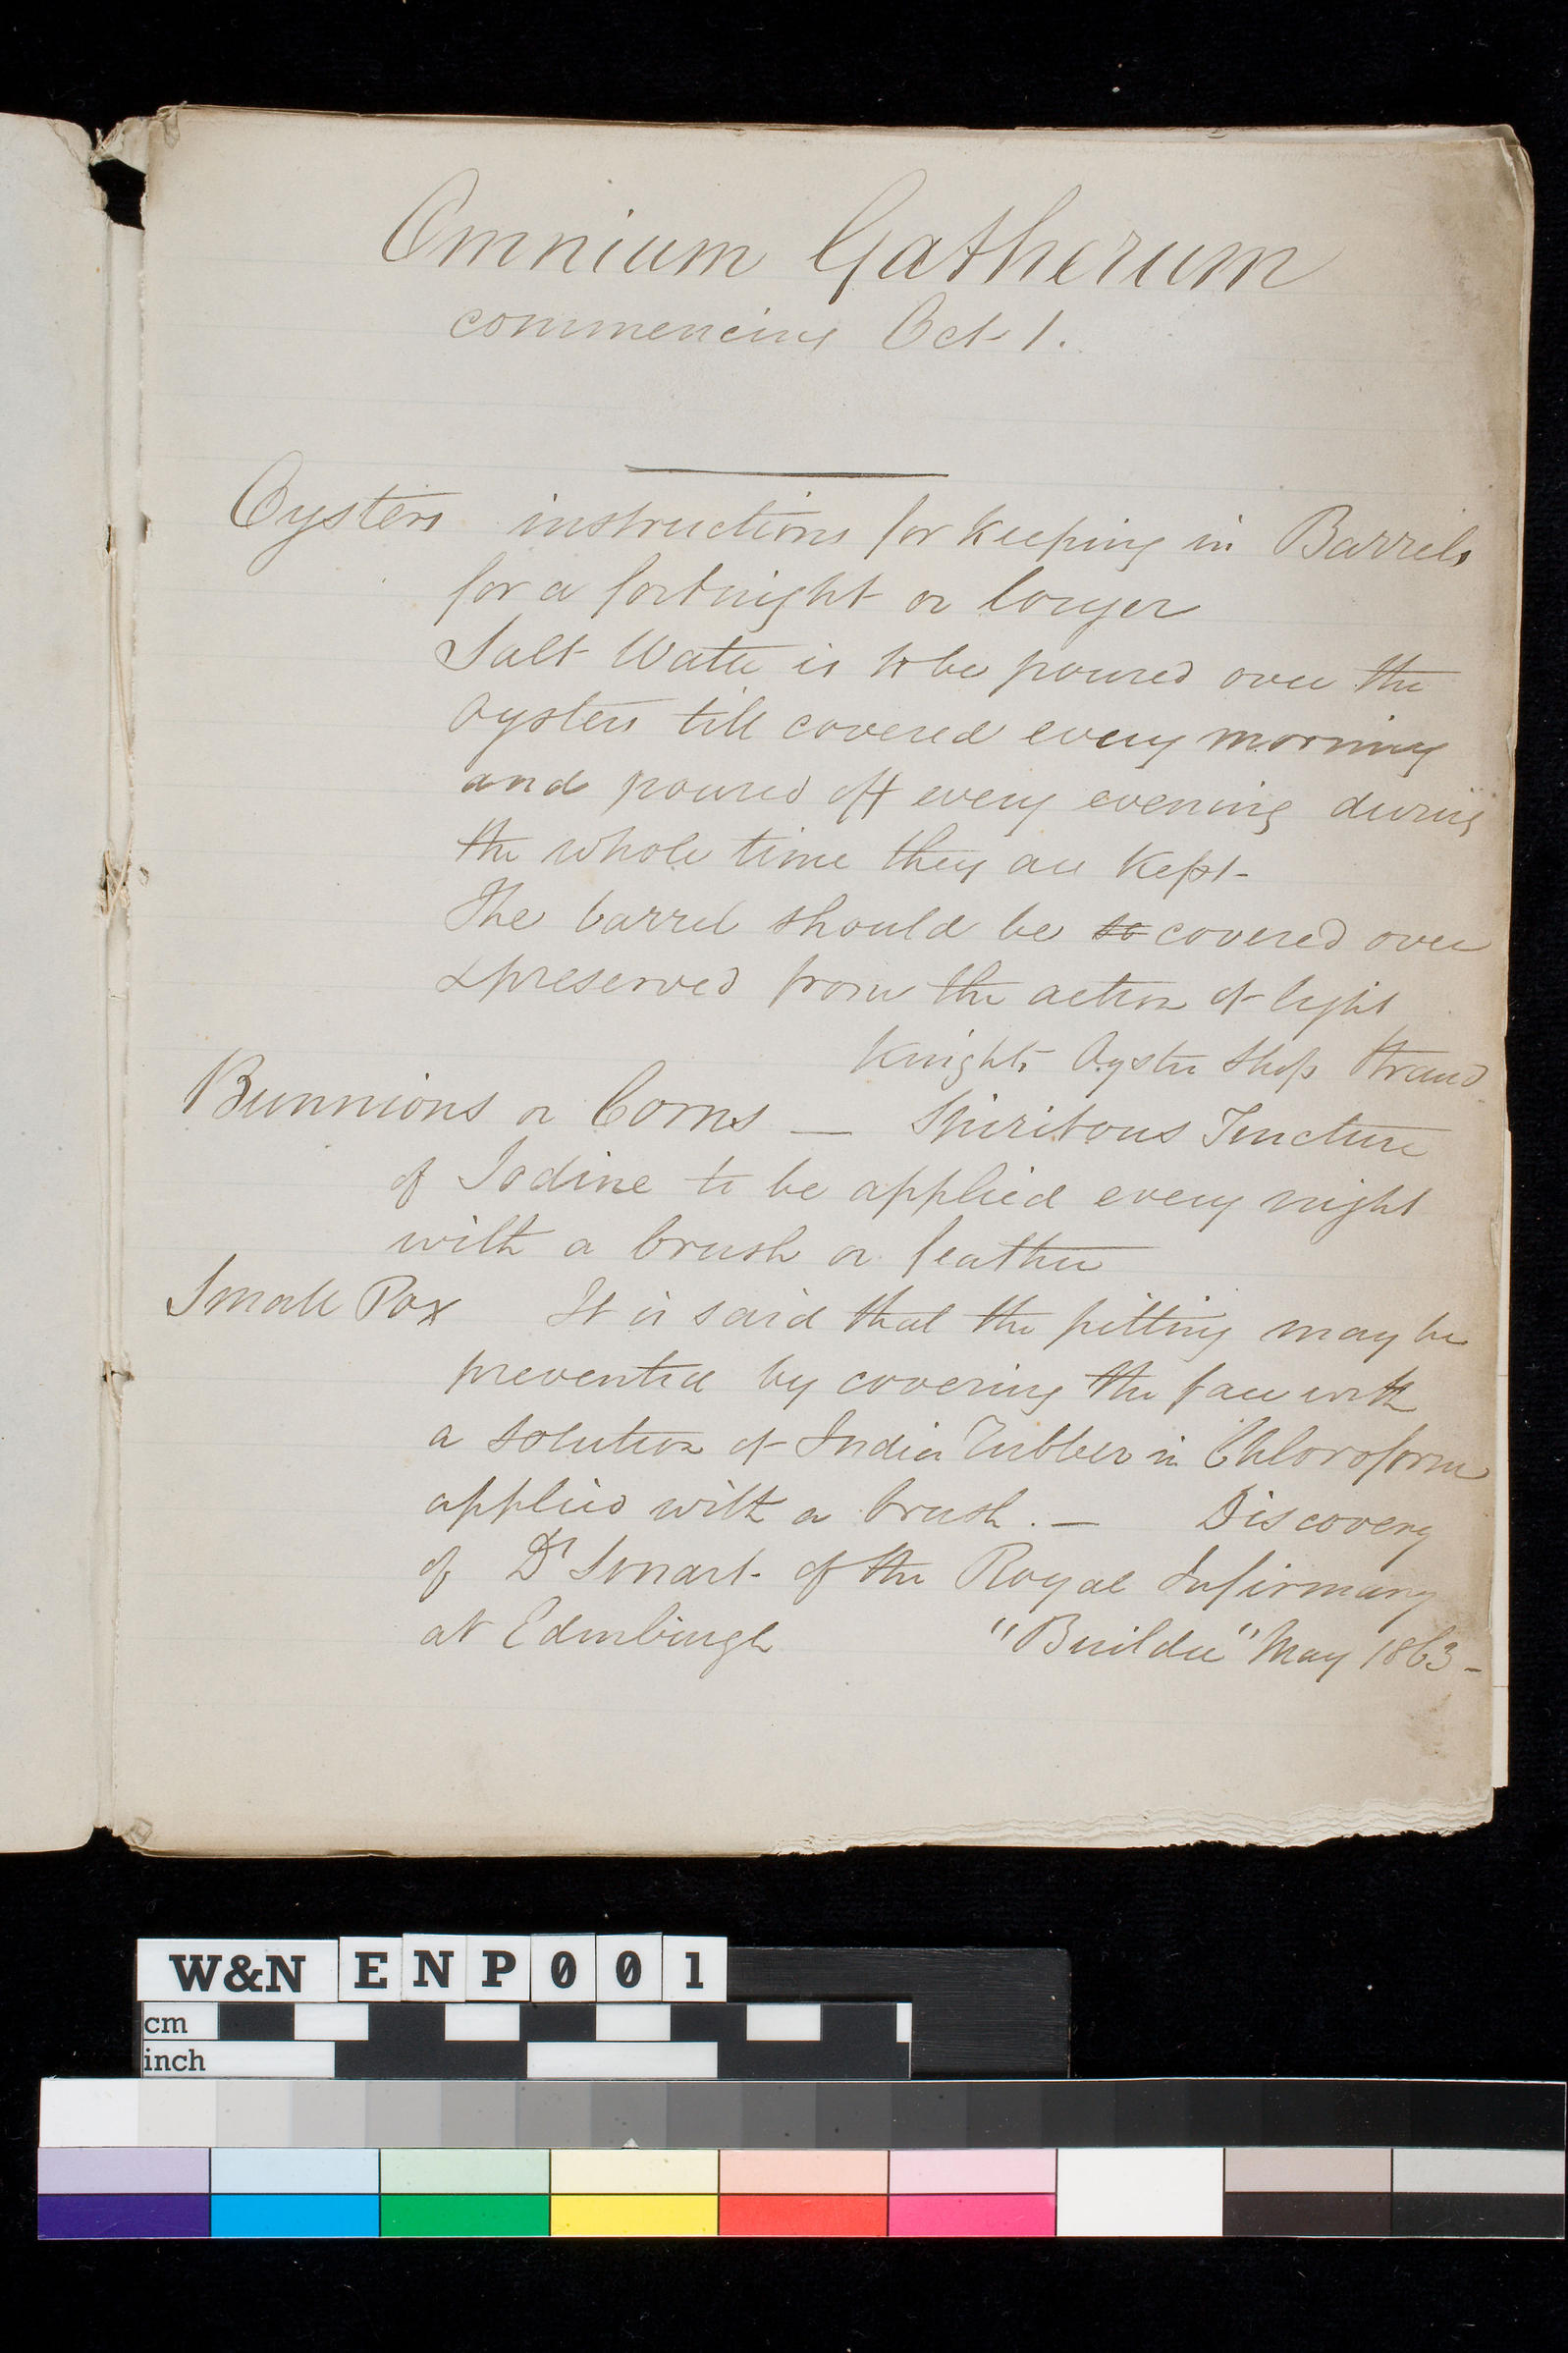 Omnium Gatherum
commencing Oct 1.
Oysters instructions for keeping in Barrels
for a fortnight or longer
Salt Water is to be poured over the
Oysters till covered every morning
and poured off every evening during
the whole time they are kept-
The barrel should be so covered over
& preserved from the action of light
Knights Oyster Shop Strand
Bunnions or Corns — Spiritous Tincture
of Iodine to be applied every night
with a brush or feather
Small Pox It is said that the pitting may be
prevented by covering the face with
a solution of India Rubber in Chloroform
applied with a brush. — Discovery
of Dr Smart of the Royal Infirmary
at Edinburgh "Builder" May 1863-
W&N ENP001
cm
inch